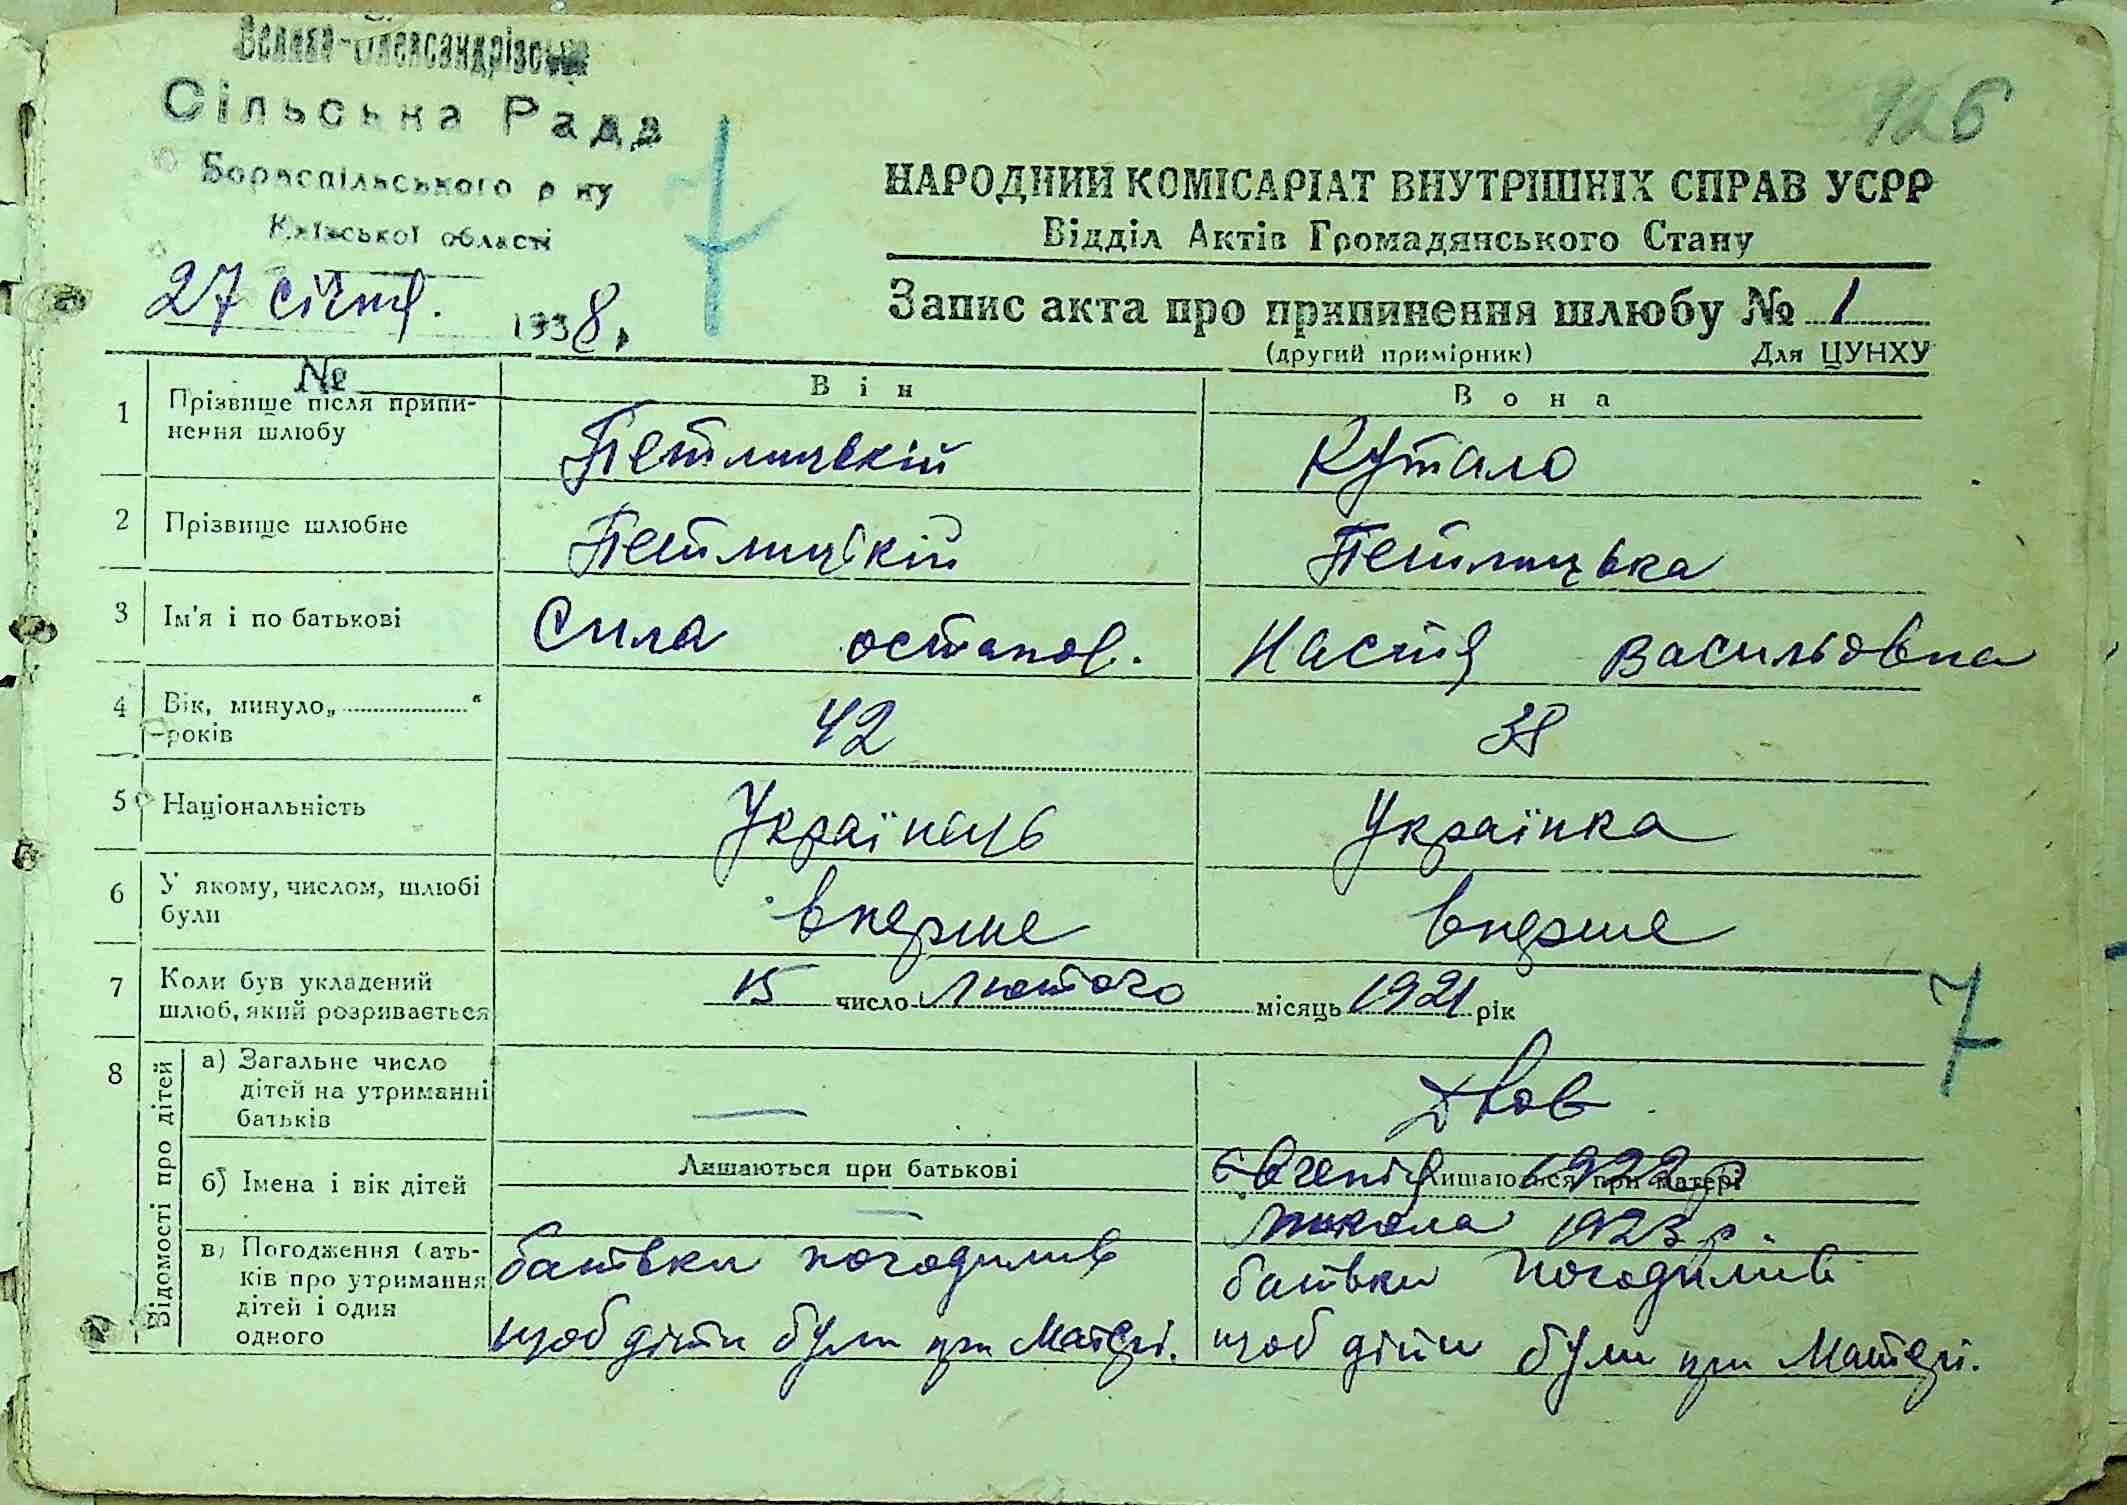 Велико-Олександрівська
Сільська Рада
Бориспільського р ну
Київської області
27 січня. 1938 р.
№
7
926
НАРОДНИЙ КОМІСАРІАТ ВНУТРІШНІХ СПРАВ УСРР
Відділ Актів Громадянського Стану
Запис акта про припинення шлюбу № 1
(другий примірник) Для ЦУНХУ
Він Вона
1 Прізвище після припи-
нення шлюбу Петлицькій Кутало
2 Прізвище шлюбне Петлицькій Петлицька
3 Ім'я і по батькові Сила остапов. Настя Васильовна
4 Вік, минуло „ “
років 42 38
5 Національність Українець Українка
6 У якому, числом, шлюбі
були вперше вперше
7 Коли був укладений
шлюб, який розривається 15 число Лютого місяць 1921 рік
7
8 Відомості про дітей
а) Загальне число
дітей на утриманні
батьків — Двоє
б) Імена і вік дітей
Лишаються при батькові Лишаються при матері
— Євгенія 1922 р
Микола 1923 р.
в) Погодження бать-
ків про утримання
дітей і один
одного
батьки погодились
щоб діти були при Матері.
батьки погодились
щоб діти були при Матері.